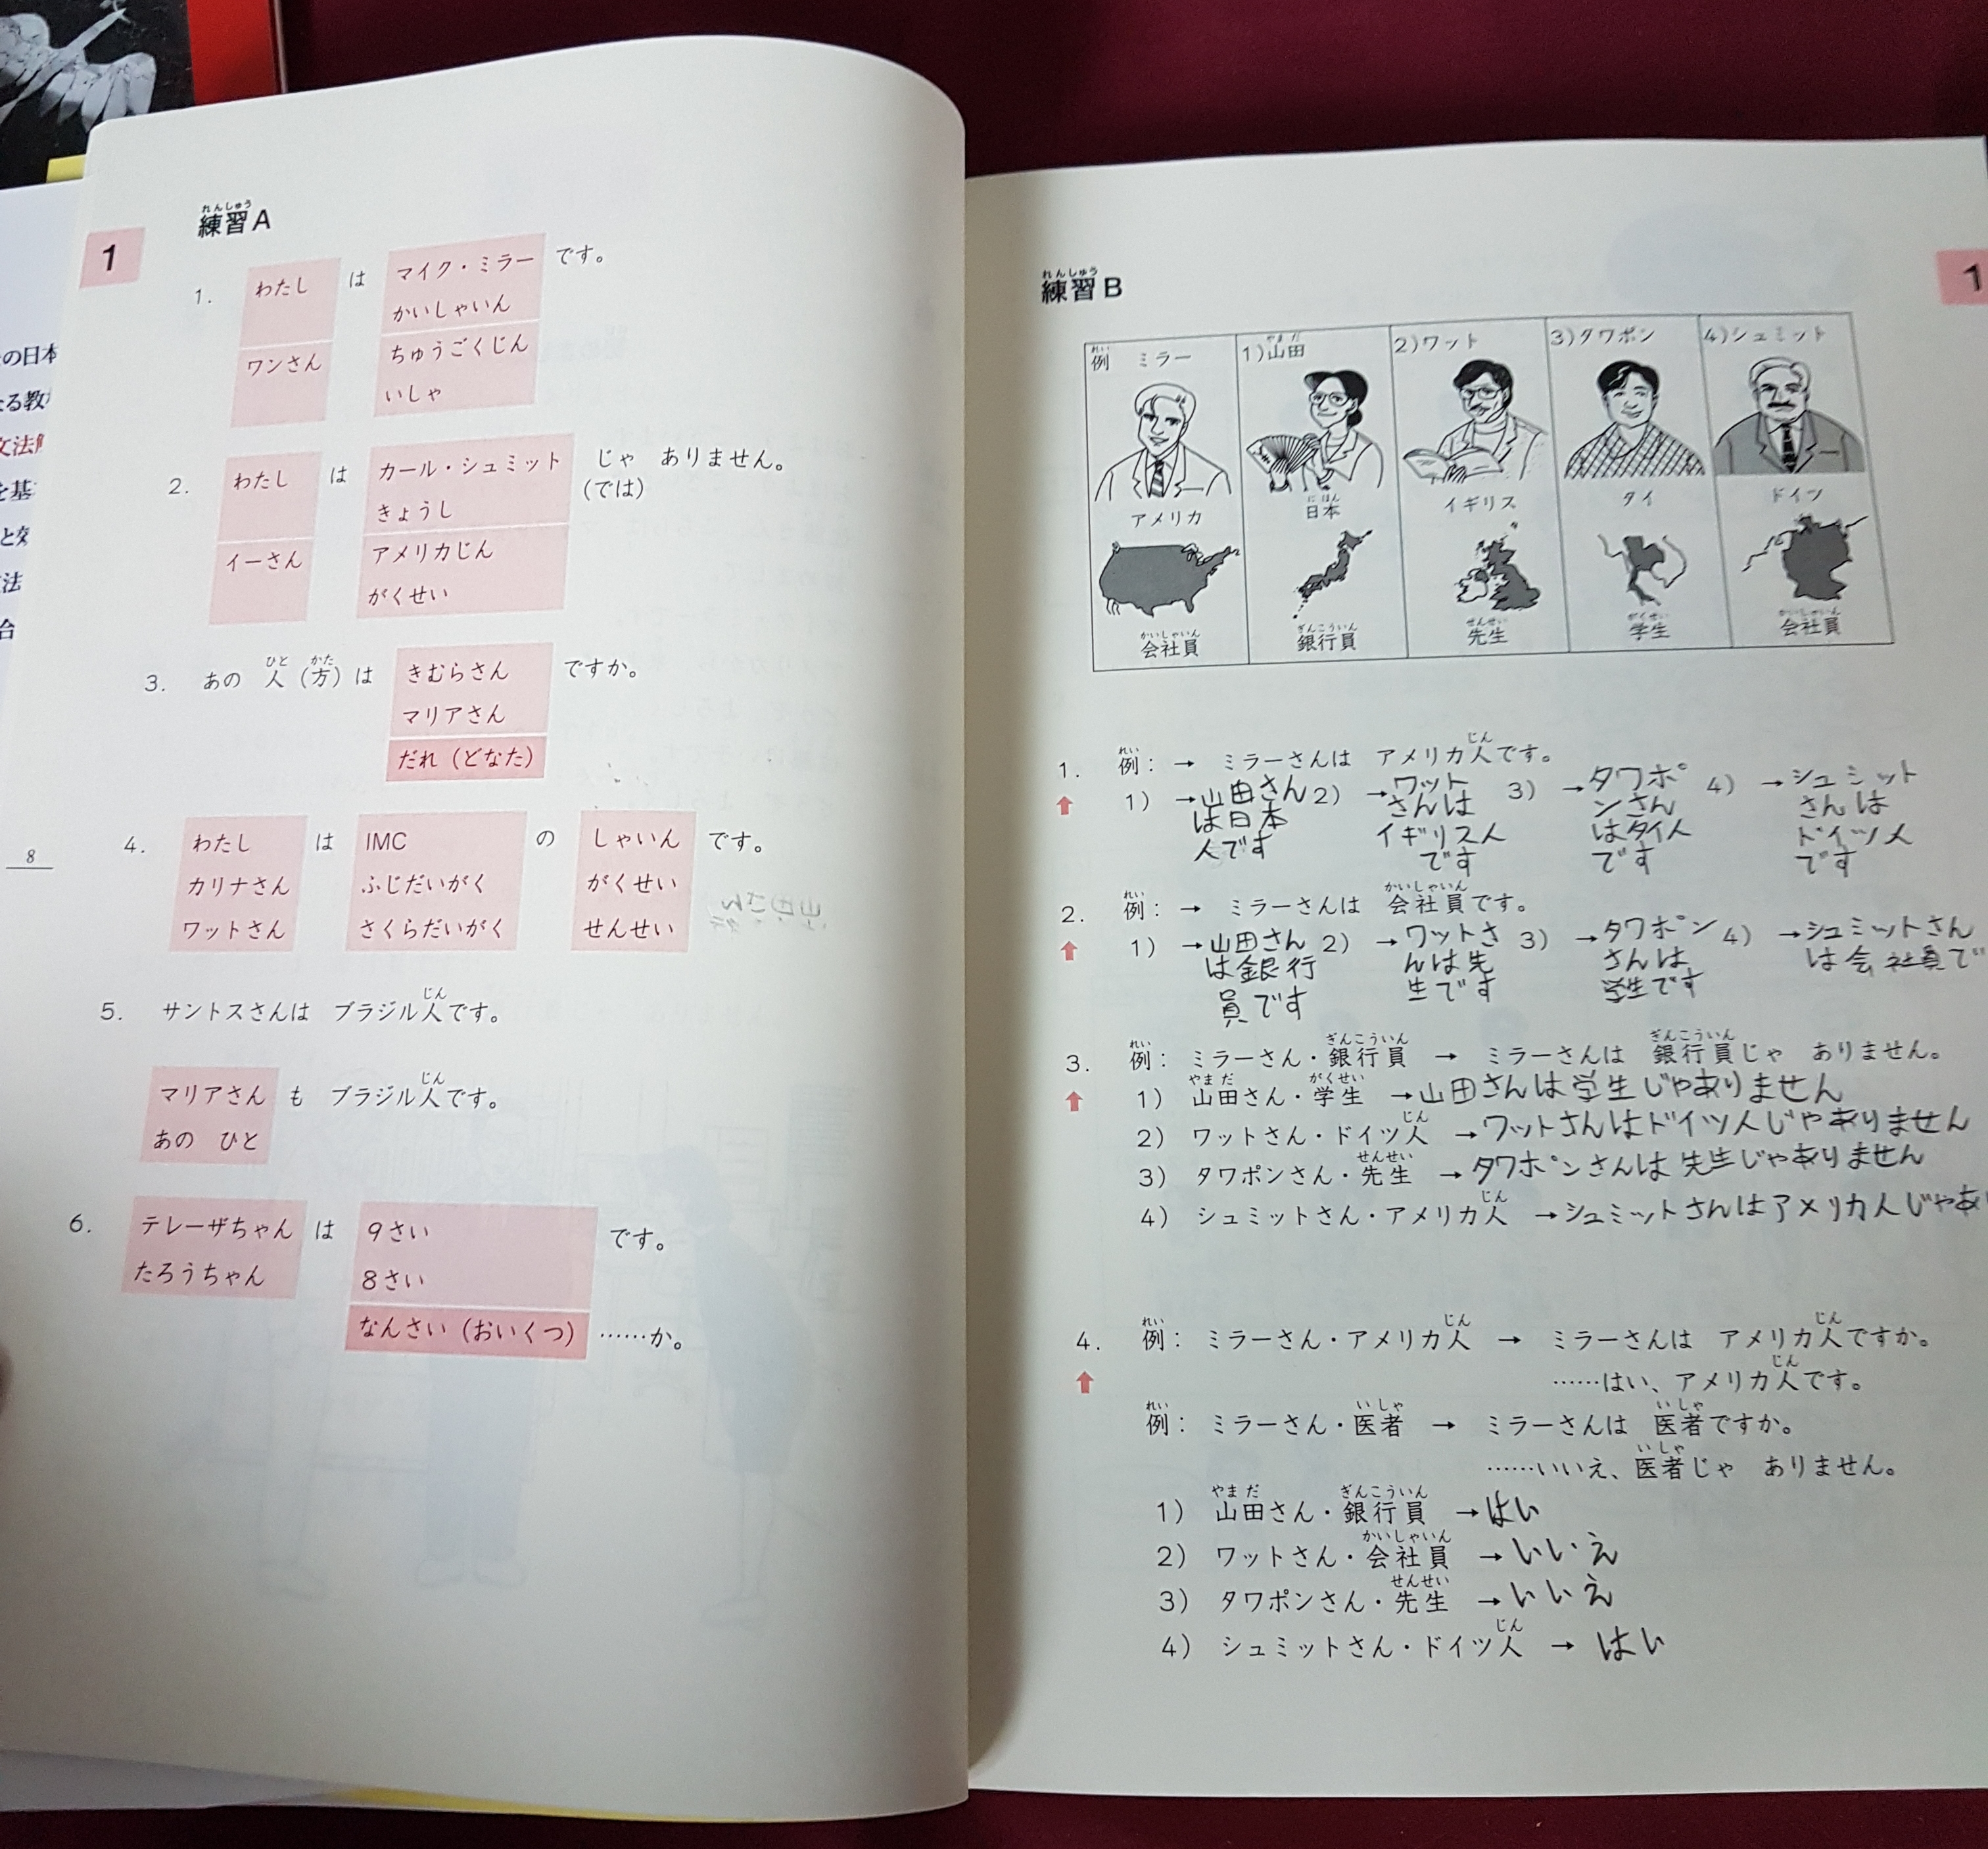 の日本
なる教
文法
を基
と効
法
合
8
れんしゅう
練習A
1
1. わたし は マイク・ミラー です。
かいしゃいん
ワンさん ちゅうごくじん
いしゃ
2. わたし は カール・シュミット じゃ ありません。
きょうし (では)
イーさん アメリカじん
がくせい
ひと かた
3. あの 人(方)は きむらさん ですか。
マリアさん
だれ(どなた)
4. わたし は IMC の しゃいん です。
カリナさん ふじだいがく がくせい
ワットさん さくらだいがく せんせい
じん
5. サントスさんは ブラジル人です。
じん
マリアさん も ブラジル人です。
あの ひと
6. テレーザちゃん は 9さい です。
たろうちゃん 8さい
なんさい(おいくつ) ……か。
れんしゅう
練習B
1
れい やまだ
例 ミラー 1)山田 2)ワット 3)タワポン 4)シュミット
にほん
アメリカ 日本 イギリス タイ ドイツ
かいしゃいん ぎんこういん せんせい がくせい かいしゃいん
会社員 銀行員 先生 学生 会社員
れい じん
1. 例: → ミラーさんは アメリカ人です。
1) →山田さんは日本人です
2) →ワットさんはイギリス人です
3) →タワポンさんはタイ人です
4) →シュミットさんはドイツ人です
れい かいしゃいん
2. 例: → ミラーさんは 会社員です。
1) →山田さんは銀行員です
2) →ワットさんは先生です
3) →タワポンさんは学生です
4) →シュミットさんは会社員で
れい ぎんこういん ぎんこういん
3. 例: ミラーさん・銀行員 → ミラーさんは 銀行員じゃ ありません。
やまだ がくせい
1) 山田さん・学生 →山田さんは学生じゃありません
じん
2) ワットさん・ドイツ人 →ワットさんはドイツ人じゃありません
せんせい
3) タワポンさん・先生 →タワポンさんは先生じゃありません
じん
4) シュミットさん・アメリカ人 →シュミットさんはアメリカ人じゃあ
れい じん じん
4. 例: ミラーさん・アメリカ人 → ミラーさんは アメリカ人ですか。
じん
……はい、アメリカ人です。
れい いしゃ いしゃ
例: ミラーさん・医者 → ミラーさんは 医者ですか。
いしゃ
……いいえ、医者じゃ ありません。
やまだ ぎんこういん
1) 山田さん・銀行員 →はい
かいしゃいん
2) ワットさん・会社員 →いいえ
せんせい
3) タワポンさん・先生 →いいえ
じん
4) シュミットさん・ドイツ人 → はい